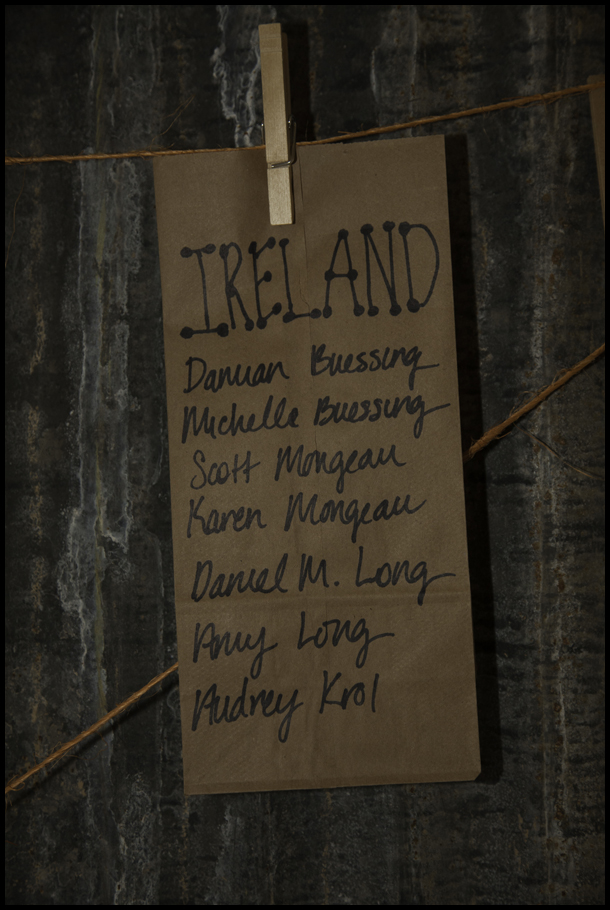 IRELAND
Damian Buessing
Michelle Buessing
Scott Mongeau
Karen Mongeau
Daniel M. Long
Amy Long
Audrey Krol